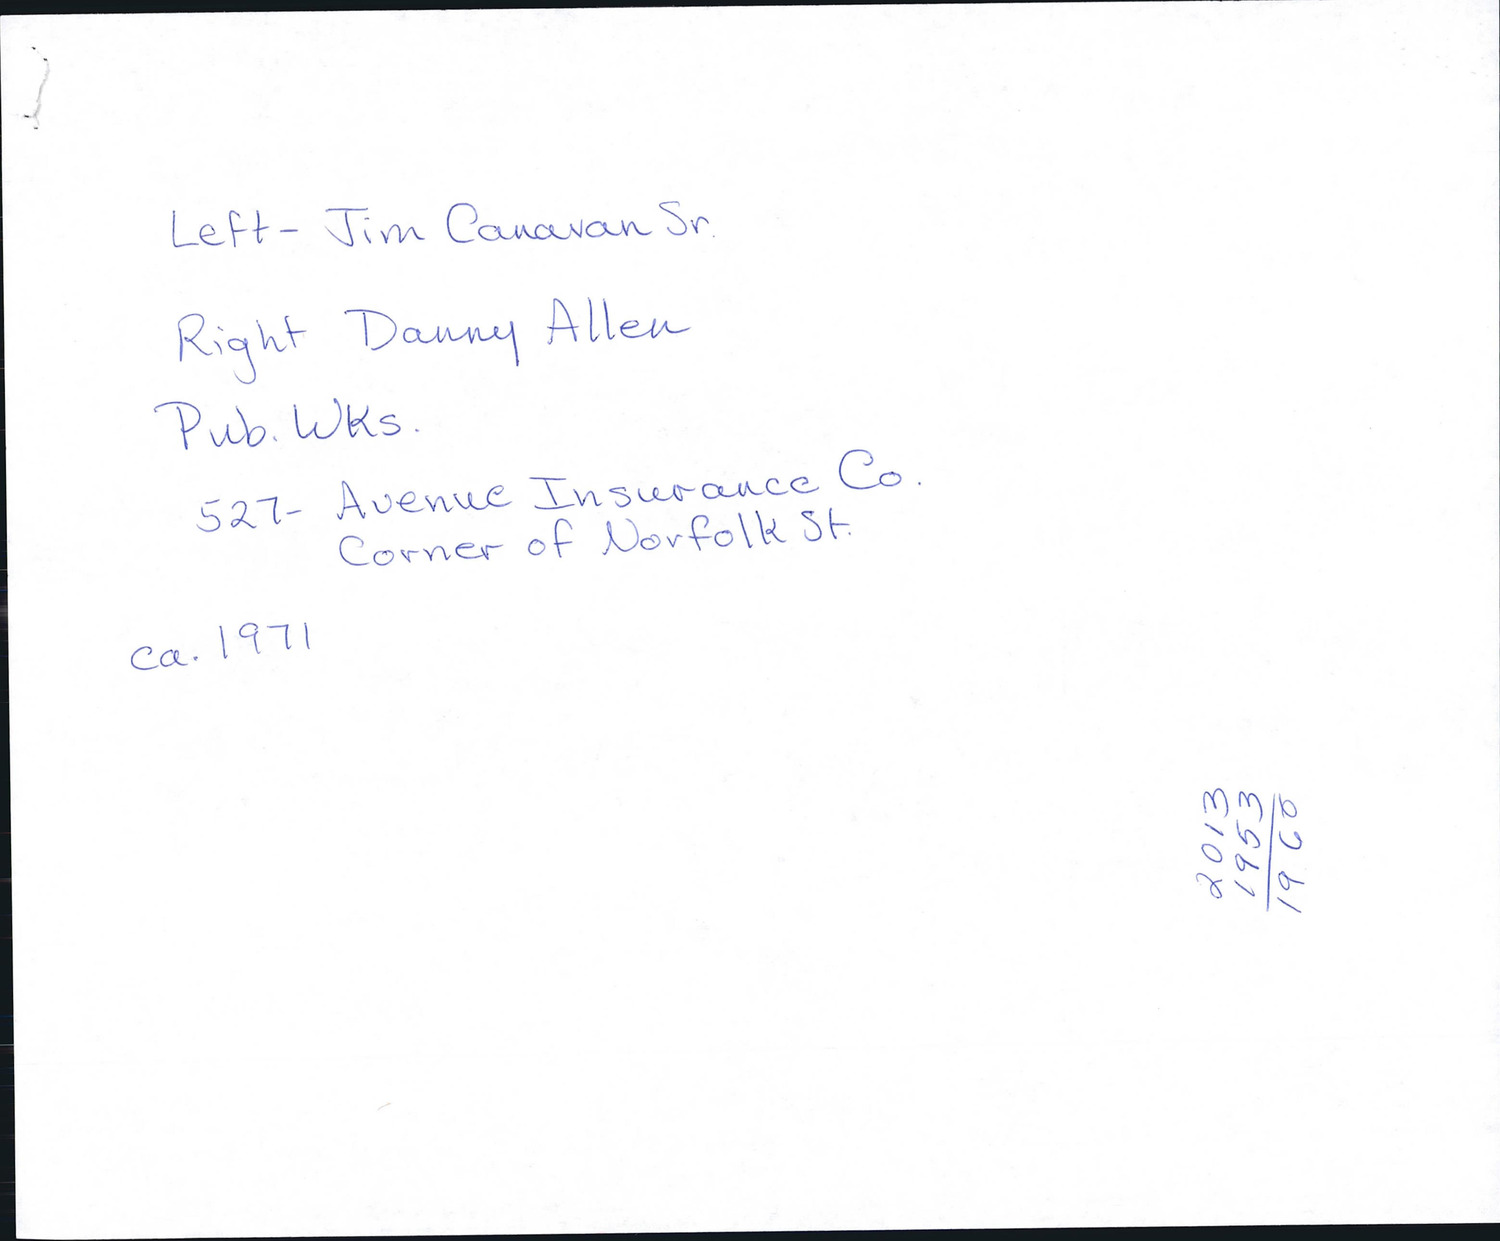 Left- Jim Canavan Sr.
Right Danny Allen
Pub. Wks.
527- Avenue Insurance Co.
Corner of Norfolk St.
ca. 1971
2013
1953
1960